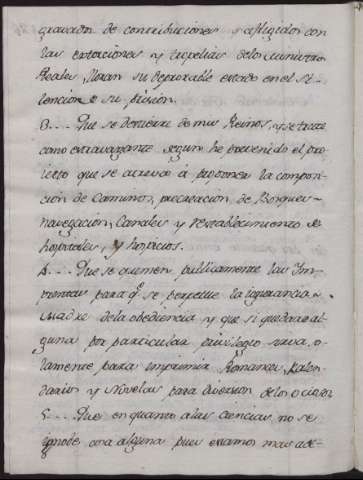 gravados de contribuciones y afligidos con
las extorciones y tropelias de los ministros
Reales, lloran su deplorable estado en el si-
lencio de su prision.
3... Que se destierre de mis Reinos, y se trate
como extravagante segun he prevenido el pro-
yecto que se atrevio à proponer la composi-
cion de Caminos, de Bosques
navegacion, Canales y restablecimiento de
hospitales, y hospicios.
4... Que se quemen publicamente las Im-
prentas para q.e se perpetue la ignorancia
Madre de la obediencia y que si quedare al-
guna por particular privilegio sirva so-
lamente para imprimir Romances, Kalen-
darios y Novelas para diversion de los ociosos
5... Que en quanto a las ciencias no se
ignobe cosa alguna pues estamos mas ade-